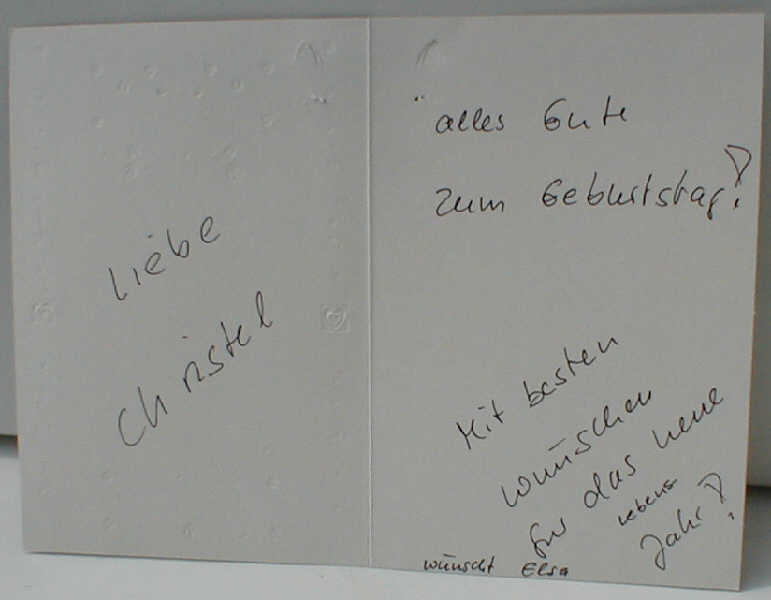 Liebe
Christel
alles Gute
zum Geburtstag!
Mit besten
wünschen
für das neue
lebens
Jahr!
wünscht Elsa